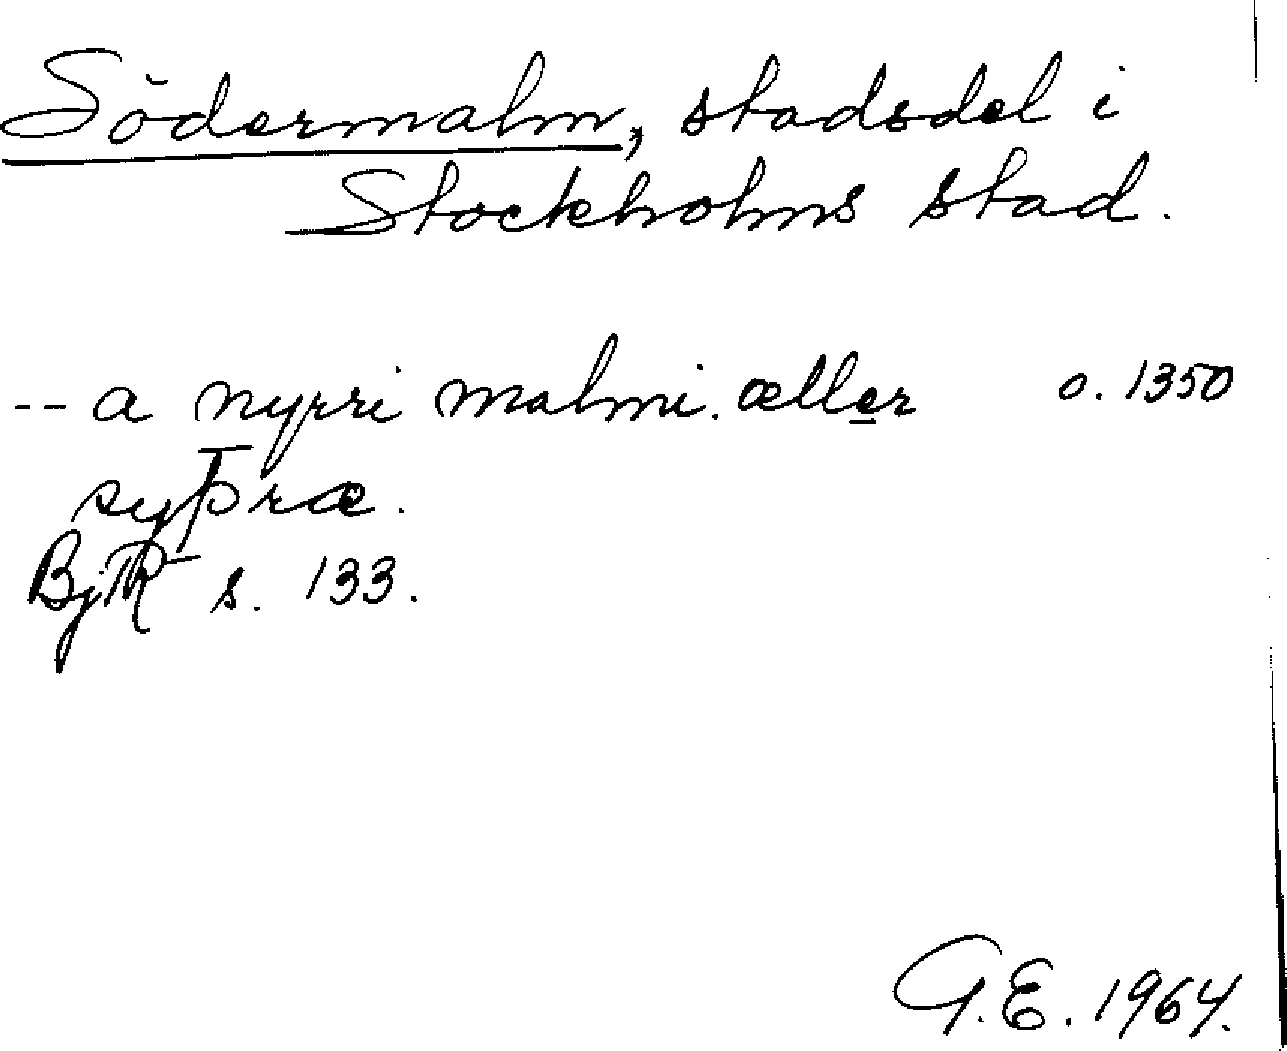 Södermalm, stadsdel i
Stockholms stad.
-- a nyrri malmi. æller o. 1350
syþræ.
BjR s. 133.
G.E. 1964.